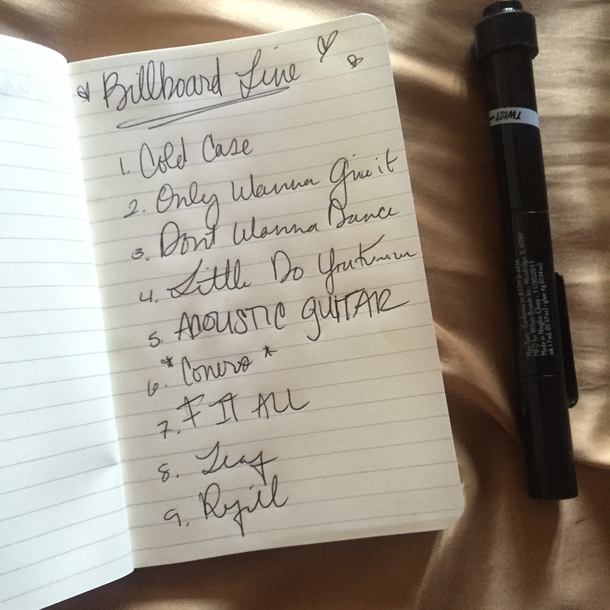 Billboard Live
1. Cold Case
2. Only Wanna Give it
3. Dont Wanna Dance
4. Little Do You Know
5. ACOUSTIC GUITAR
6. *Covers*
7. F IT ALL
8. Leaf
9. Refill
TWIST